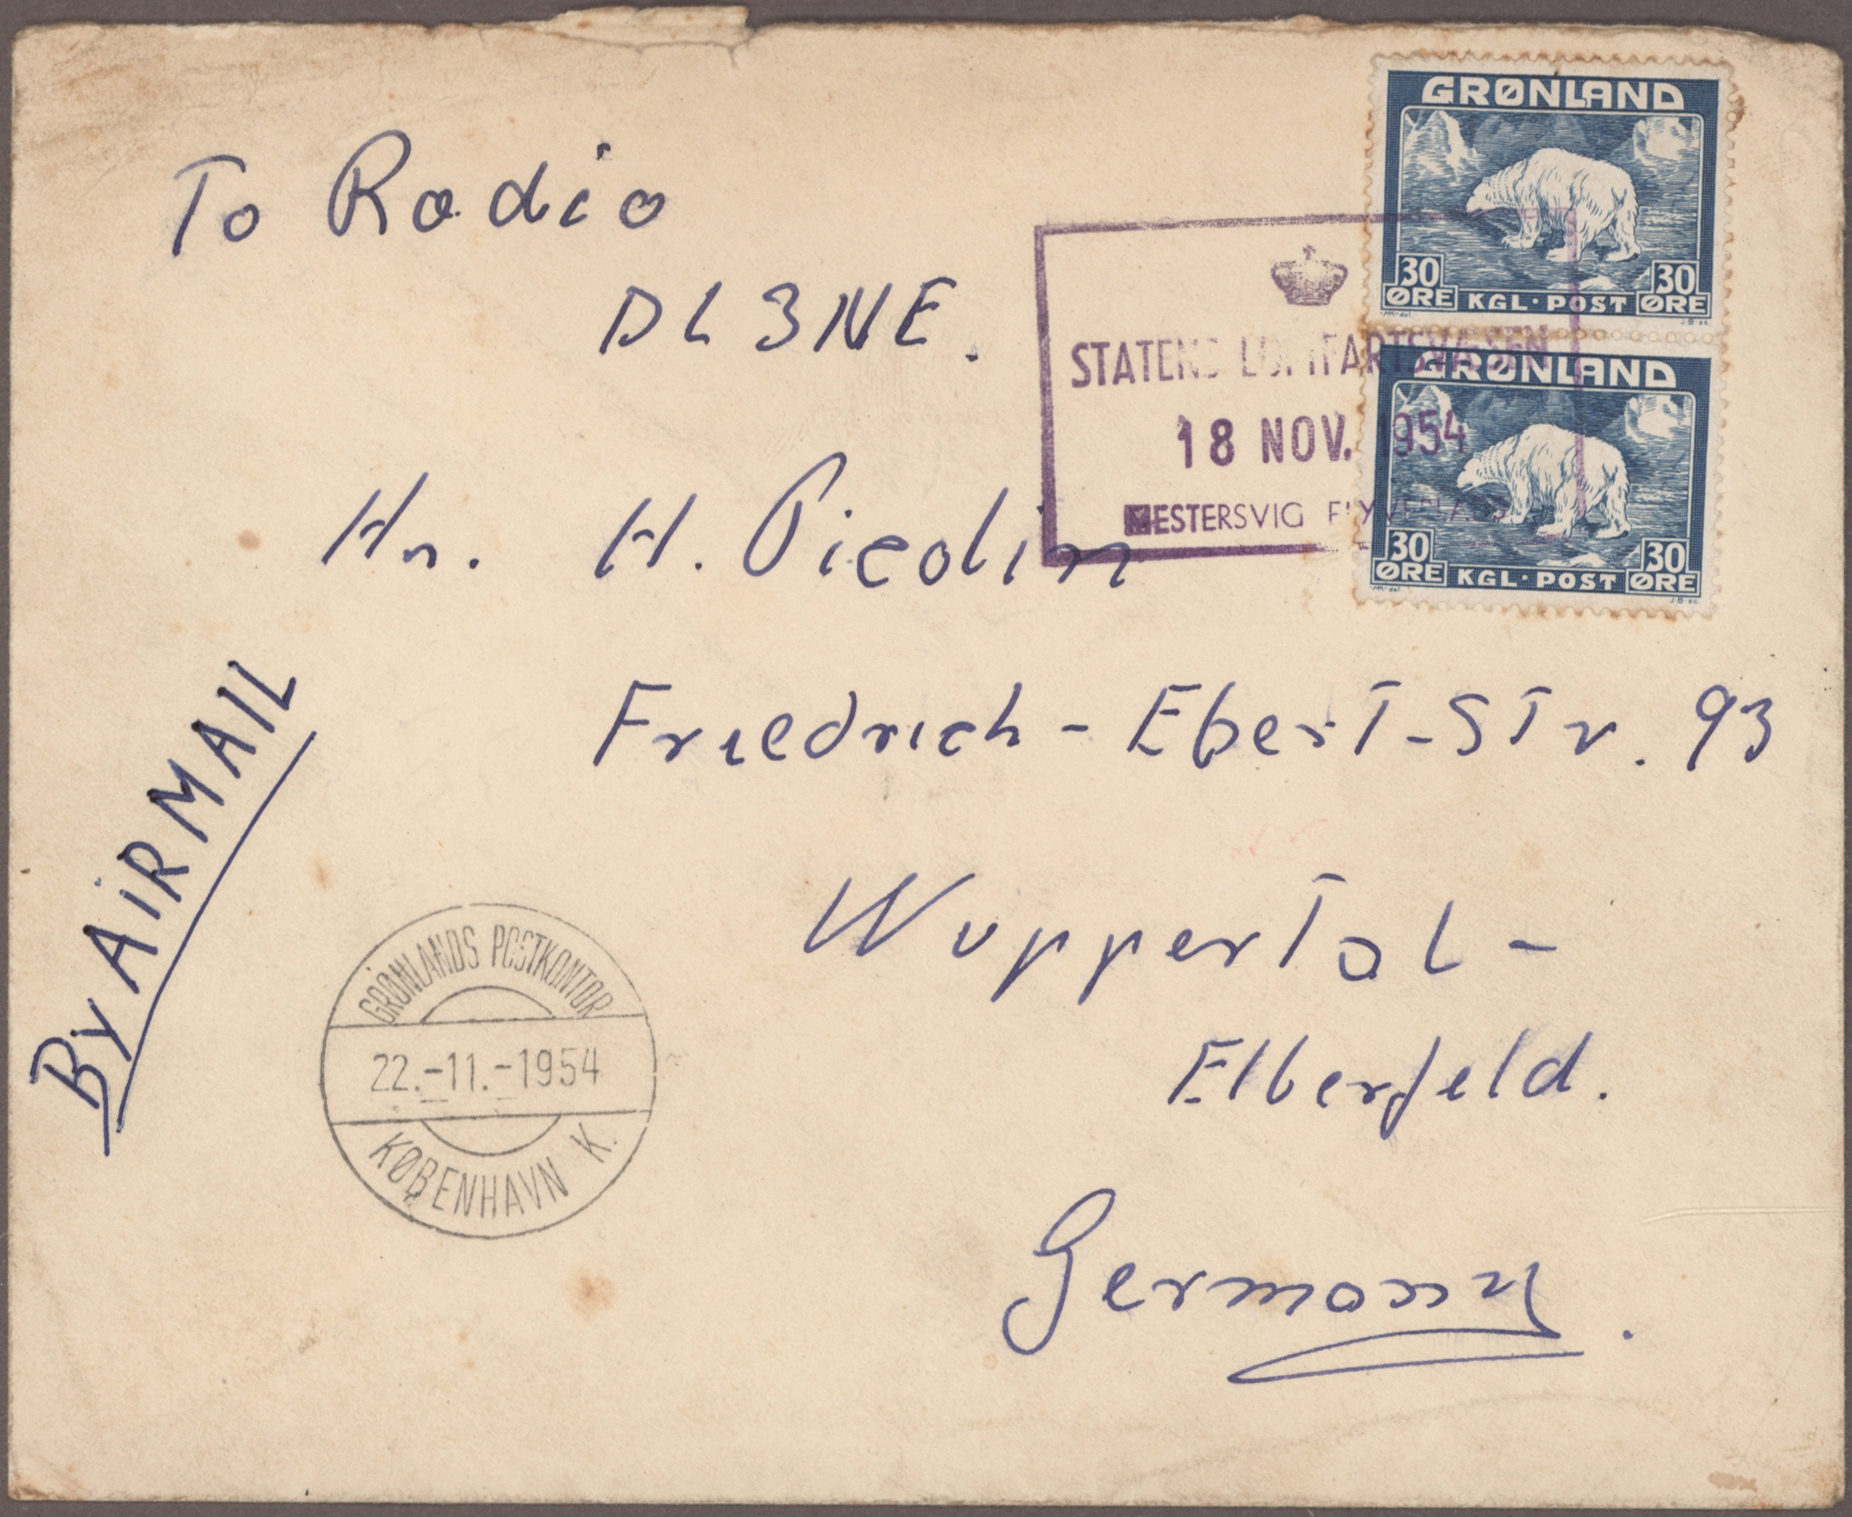 GRØNLAND
30 ØRE KGL·POST 30 ØRE
GRØNLAND
30 ØRE KGL·POST 30 ØRE
STATENS LUFTFARTSVÆSEN
18 NOV. 1954
MESTERSVIG FLYVEPLADS
To Radio
DL3NE.
Hr. H. Piedlim
Friedrich-Ebert-Str. 93
Wuppertal-
Elberfeld.
Germany.
By AiRMAIL
GRØNLANDS POSTKONTOR
22.-11.-1954
KØBENHAVN K.